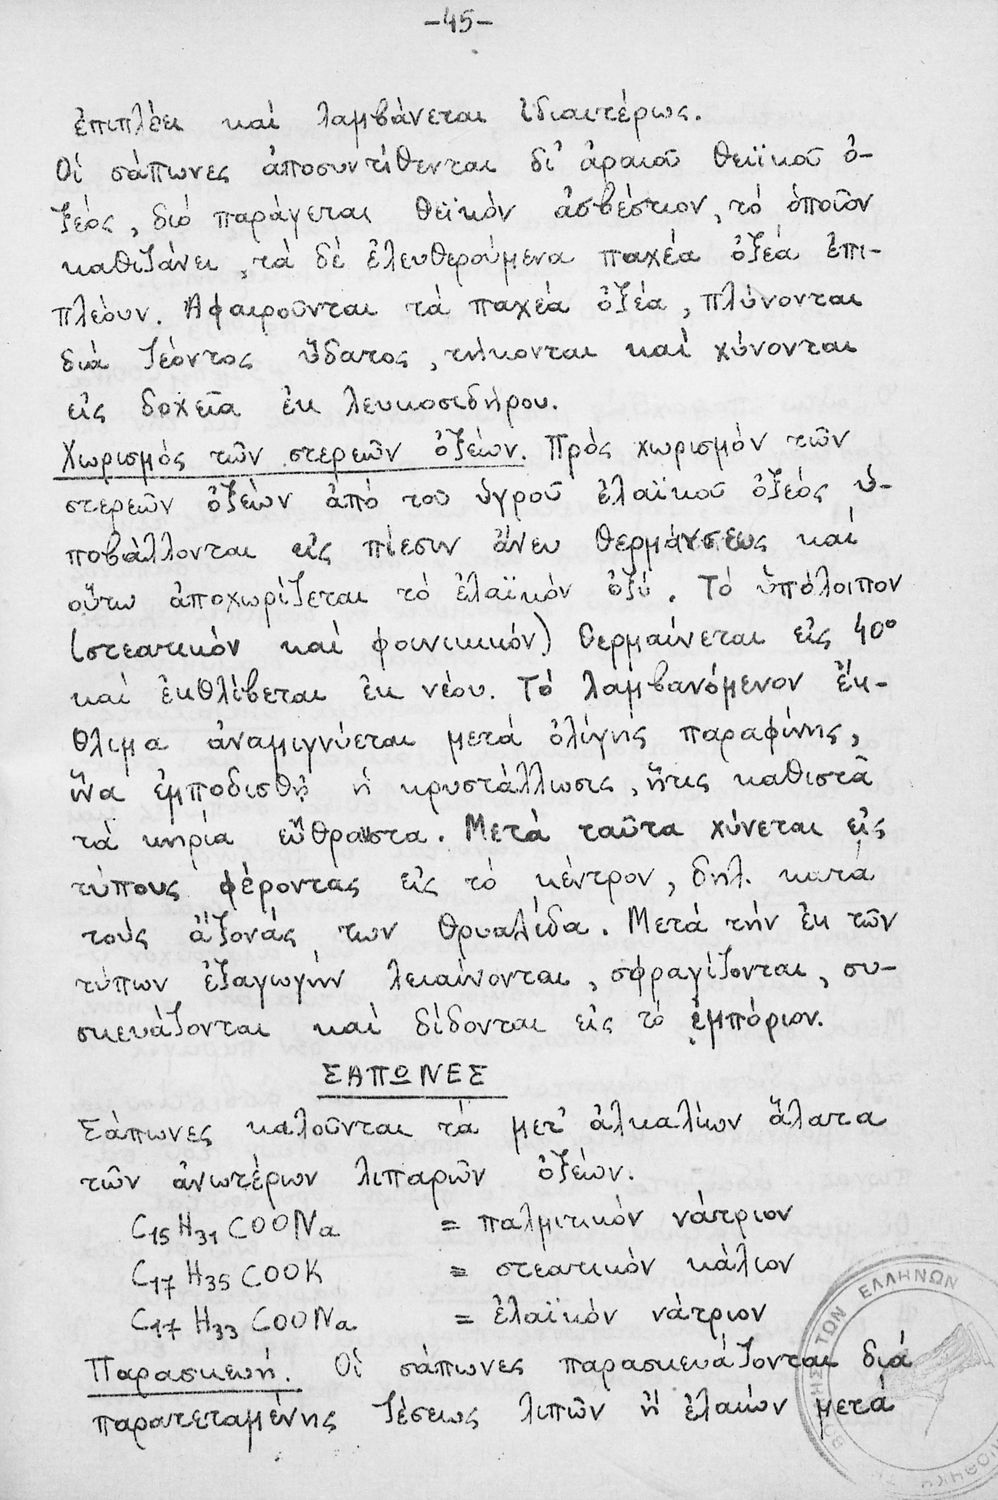 -45-
ἐπιπλέει καί λαμβάνεται ἰδιαιτέρως.
Οἱ σάπωνες ἀποσυντίθενται δι' ἀραιοῦ θειϊκοῦ ὀ-
ξεός, διό παράγεται θεϊκόν ἀσβέστιον, τό ὁποῖον
καθιζάνει, τά δέ ἐλευθερούμενα παχέα ὀξέα ἐπι-
πλέουν. Ἀφαιροῦνται τά παχέα ὀξέα, πλύνονται
διά ζέοντος ὕδατος, τήκονται καί χύνονται
εἰς δοχεῖα ἐκ λευκοσιδήρου.
Χωρισμός τῶν στερεῶν ὀξέων. Πρός χωρισμόν τῶν
στερεῶν ὀξέων ἀπό τοῦ ὑγροῦ ἐλαϊκοῦ ὀξέος ὑ-
ποβάλλονται εἰς πίεσιν ἄνευ θερμάνσεως καί
οὕτω ἀποχωρίζεται τό ἐλαϊκόν ὀξύ. Τό ὑπόλοιπον
(στεατικόν καί φοινικικόν) θερμαίνεται εἰς 40°
καί ἐκθλίβεται ἐκ νέου. Τό λαμβανόμενον ἔκ-
θλιμα ἀναμιγνύεται μετά ὀλίγης παραφίνης,
ἵνα ἐμποδισθῇ ἡ κρυστάλλωσις, ἥτις καθιστᾶ
τά κηρία εὔθραυστα. Μετά ταῦτα χύνεται εἰς
τύπους φέροντας εἰς τό κέντρον, δηλ. κατά
τούς ἄξονάς των θρυαλίδα. Μετά τήν ἐκ τῶν
τύπων ἐξαγωγήν λειαίνονται, σφραγίζονται, συ-
σκευάζονται καί δίδονται εἰς τό ἐμπόριον.
ΣΑΠΩΝΕΣ
Σάπωνες καλοῦνται τά μετ' ἀλκαλίων ἅλατα
τῶν ἀνωτέρων λιπαρῶν ὀξέων.
C₁₅H₃₁COONa = παλμιτικόν νάτριον
C₁₇H₃₅COOK = στεατικόν κάλιον
C₁₇H₃₃COONa = ἐλαϊκόν νάτριον
Παρασκευή. Οἱ σάπωνες παρασκευάζονται διά
παρατεταμένης ζέσεως λιπῶν ἤ ἐλαίων μετά
ΤΩΝ ΕΛΛΗΝΩΝ